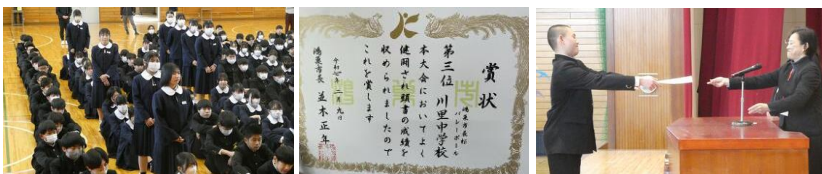 賞状
鴻巣市長杯
バレーボール
第三位 川里中学校
本大会においてよく
健闘され頭書の成績を
収められましたので
これを賞します
令和 年二月九日
鴻巣市長 並木正年